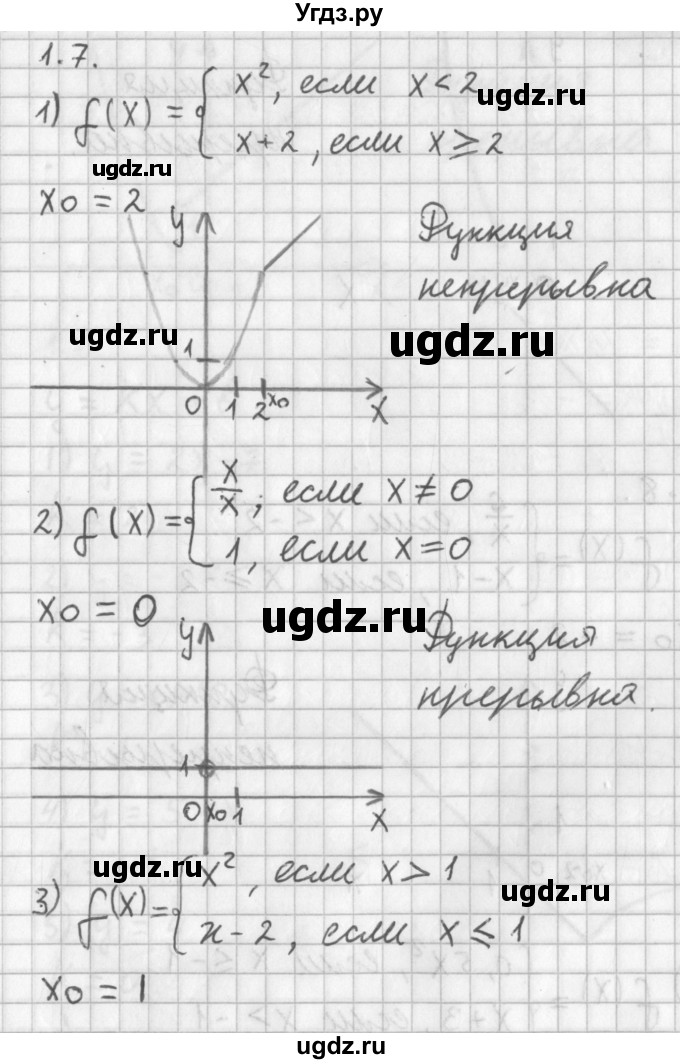 Угдз.ру
1.7.
1) f(x) = { x², если x < 2
x+2, если x ≥ 2
ugdz.ru
ugdz.ru
x0 = 2
y
Функция
непрерывна
ugdz.ru
ugdz.ru
1
0 1 2 x0 x
2) f(x) = { x/x, если x ≠ 0
1, если x = 0
x0 = 0
ugdz.ru
ugdz.ru
y
Функция
прерывна.
1
0 x0 1 x
ugdz.ru
ugdz.ru
3) f(x) = { x², если x > 1
x-2, если x ≤ 1
x0 = 1
ugdz.ru